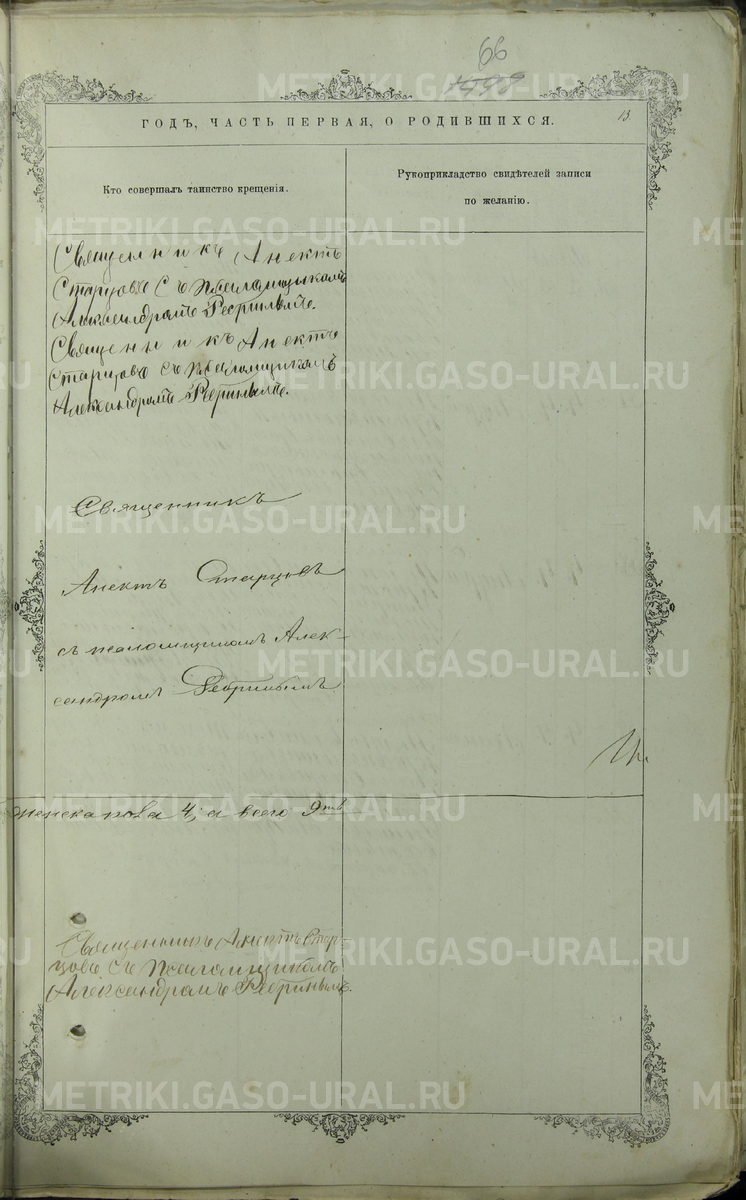 66
1998
ГОДЪ, ЧАСТЬ ПЕРВАЯ, О РОДИВШИХСЯ.
13.
Кто совершалъ таинство крещенія.
Рукоприкладство свидѣтелей записи
по желанію.
Священникъ Анектъ
Старцовъ съ псаломщикомъ
Александромъ
Священникъ Анектъ
Старцовъ съ псаломщикомъ
Александромъ
Священникъ
Анектъ Старцовъ
съ псаломщикомъ Алек-
сандромъ
женска пола 4, а всего 9ть
Священникъ Анектъ Стар-
цовъ съ Псаломщикомъ
Александромъ
METRIKI.GASO-URAL.RU